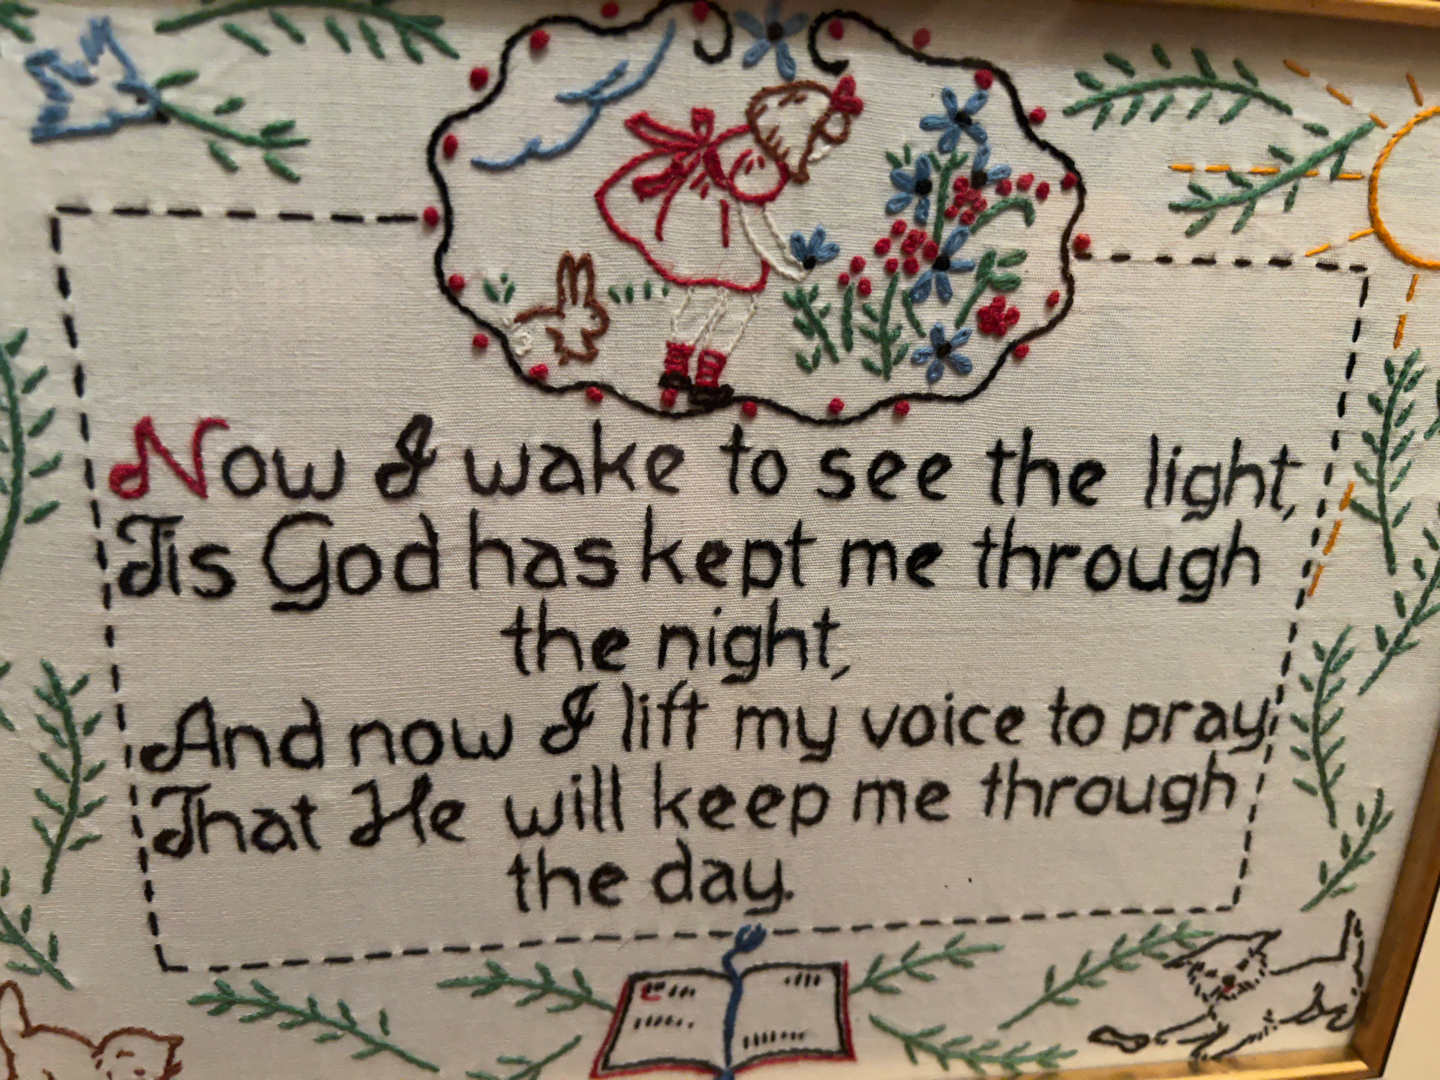 Now I wake to see the light,
Tis God has kept me through
the night,
And now I lift my voice to pray,
That He will keep me through
the day.